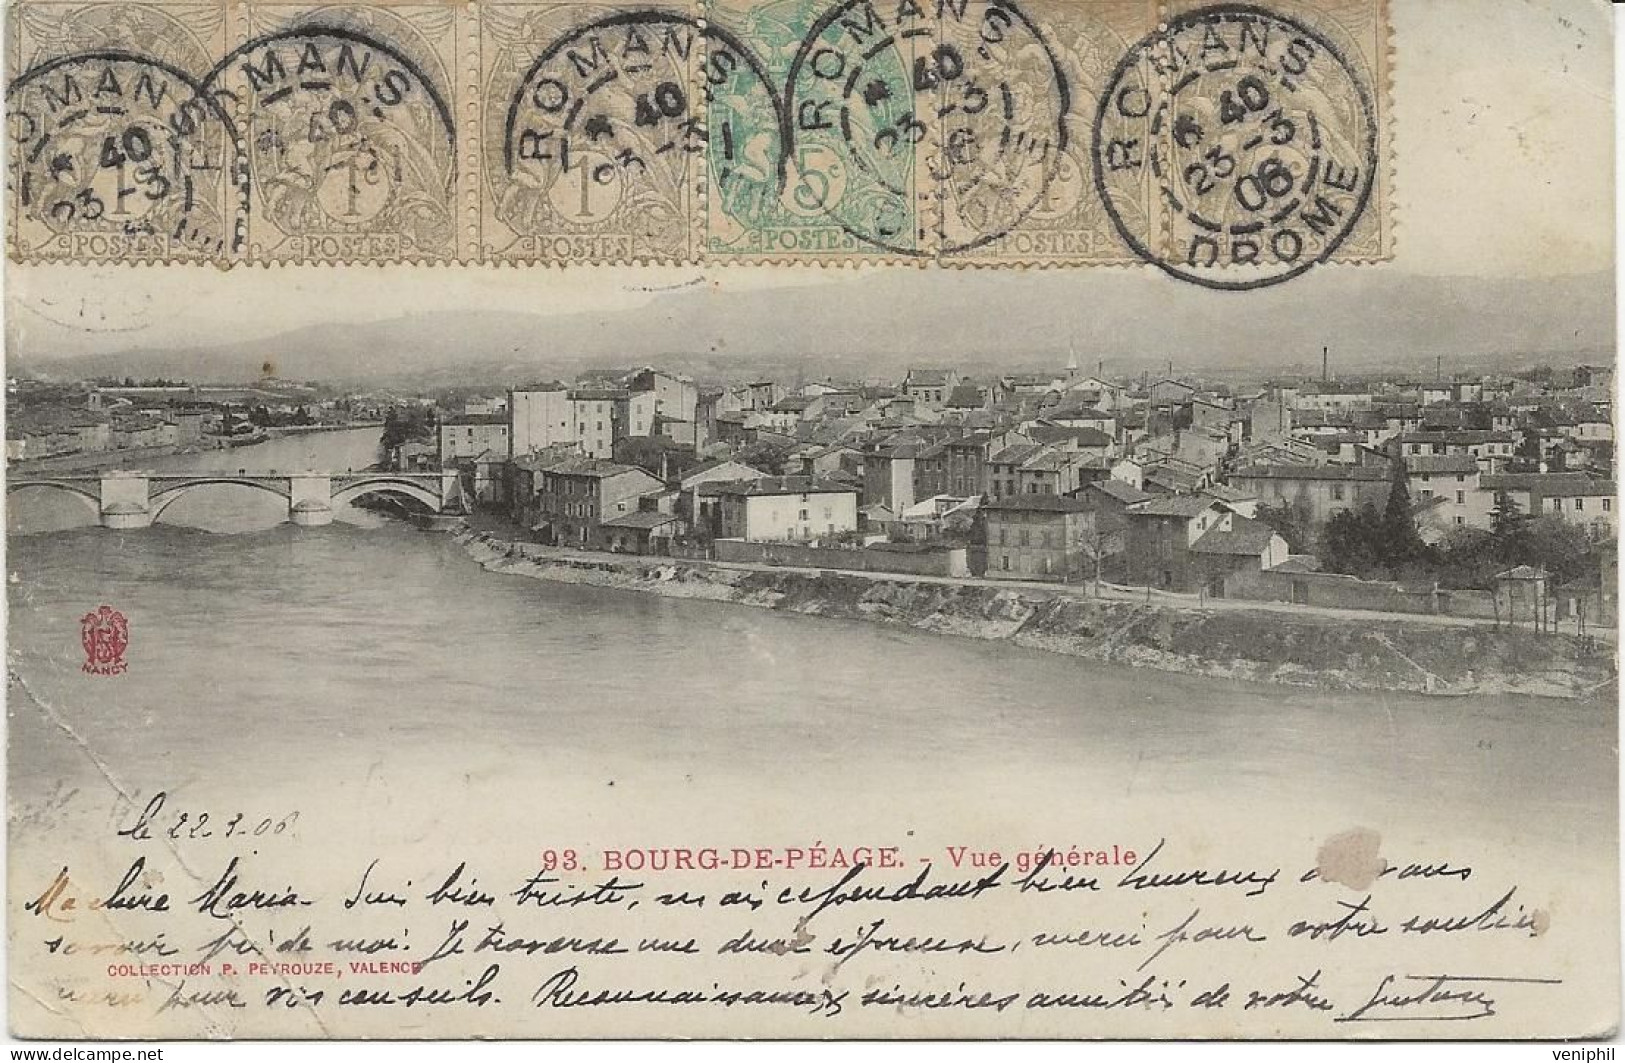 ROMANS ROMANS ROMANS ROMANS ROMANS
* 40 * 40 * 40 * 40 6 40
23-3 23-3 23-3 23-3
06 06
DROME
1c 1c 1c 5c
POSTES POSTES POSTES POSTES POSTES
NANCY
le 22.3.06
93. BOURG-DE-PÉAGE. - Vue générale
Ma chère Maria - Suis bien triste, mais cependant bien heureux de vous
savoir près de moi. Je traverse une dure épreuve, merci pour votre soutien
COLLECTION P. PEYROUZE, VALENCE
merci pour vos conseils. Reconnaissance, sincères amitiés de votre Gustave
veniphil